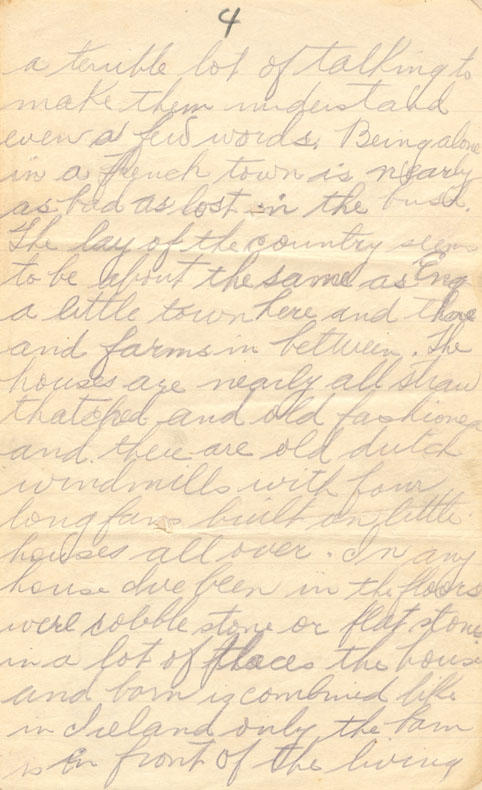 4
a terrible lot of talking to
make them understand
even a few words. Being alone
in a French town is nearly
as bad as lost in the bush.
The lay of the country seems
to be about the same as Eng
a little town here and there
and farms in between. The
houses are nearly all straw
thatched and old fashioned
and there are old dutch
windmills with four
long fans built on little
houses all over. In any
house I've been in the floors
were cobble stone or flat stone
in a lot of places the house
and barn is combined like
in Ireland only the barn
is in front of the living